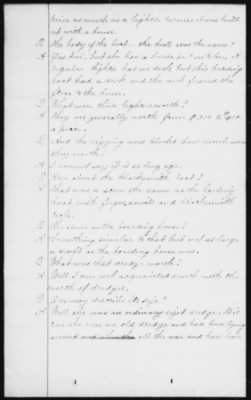 twice as much as a lighter because it was built
up with a house.
Q The body of the boat — the hull was the same?
A Yes sir, but she has a house on
regular lighter has no deck, but this boarding
boat had a deck and the deck formed the
floor to the house.
Q What were those lighters worth?
A They are generally worth from
a piece.
Q And the rigging and blocks how much were
they worth?
A I cannot say it is so long ago.
Q You about the blacksmith boat?
A That was a scow the same as the boarding
boat with forges, anvils and blacksmith
tools.
Q The same as the boarding house?
A Something similar to that but not as large
a craft as the boarding house was.
Q What was that dredge worth?
A Well I am not acquainted much with the
worth of dredges.
Q You may describe its size?
A Well she was an ordinary sized dredge.
she was an old dredge and had been lying
around and all the war and had